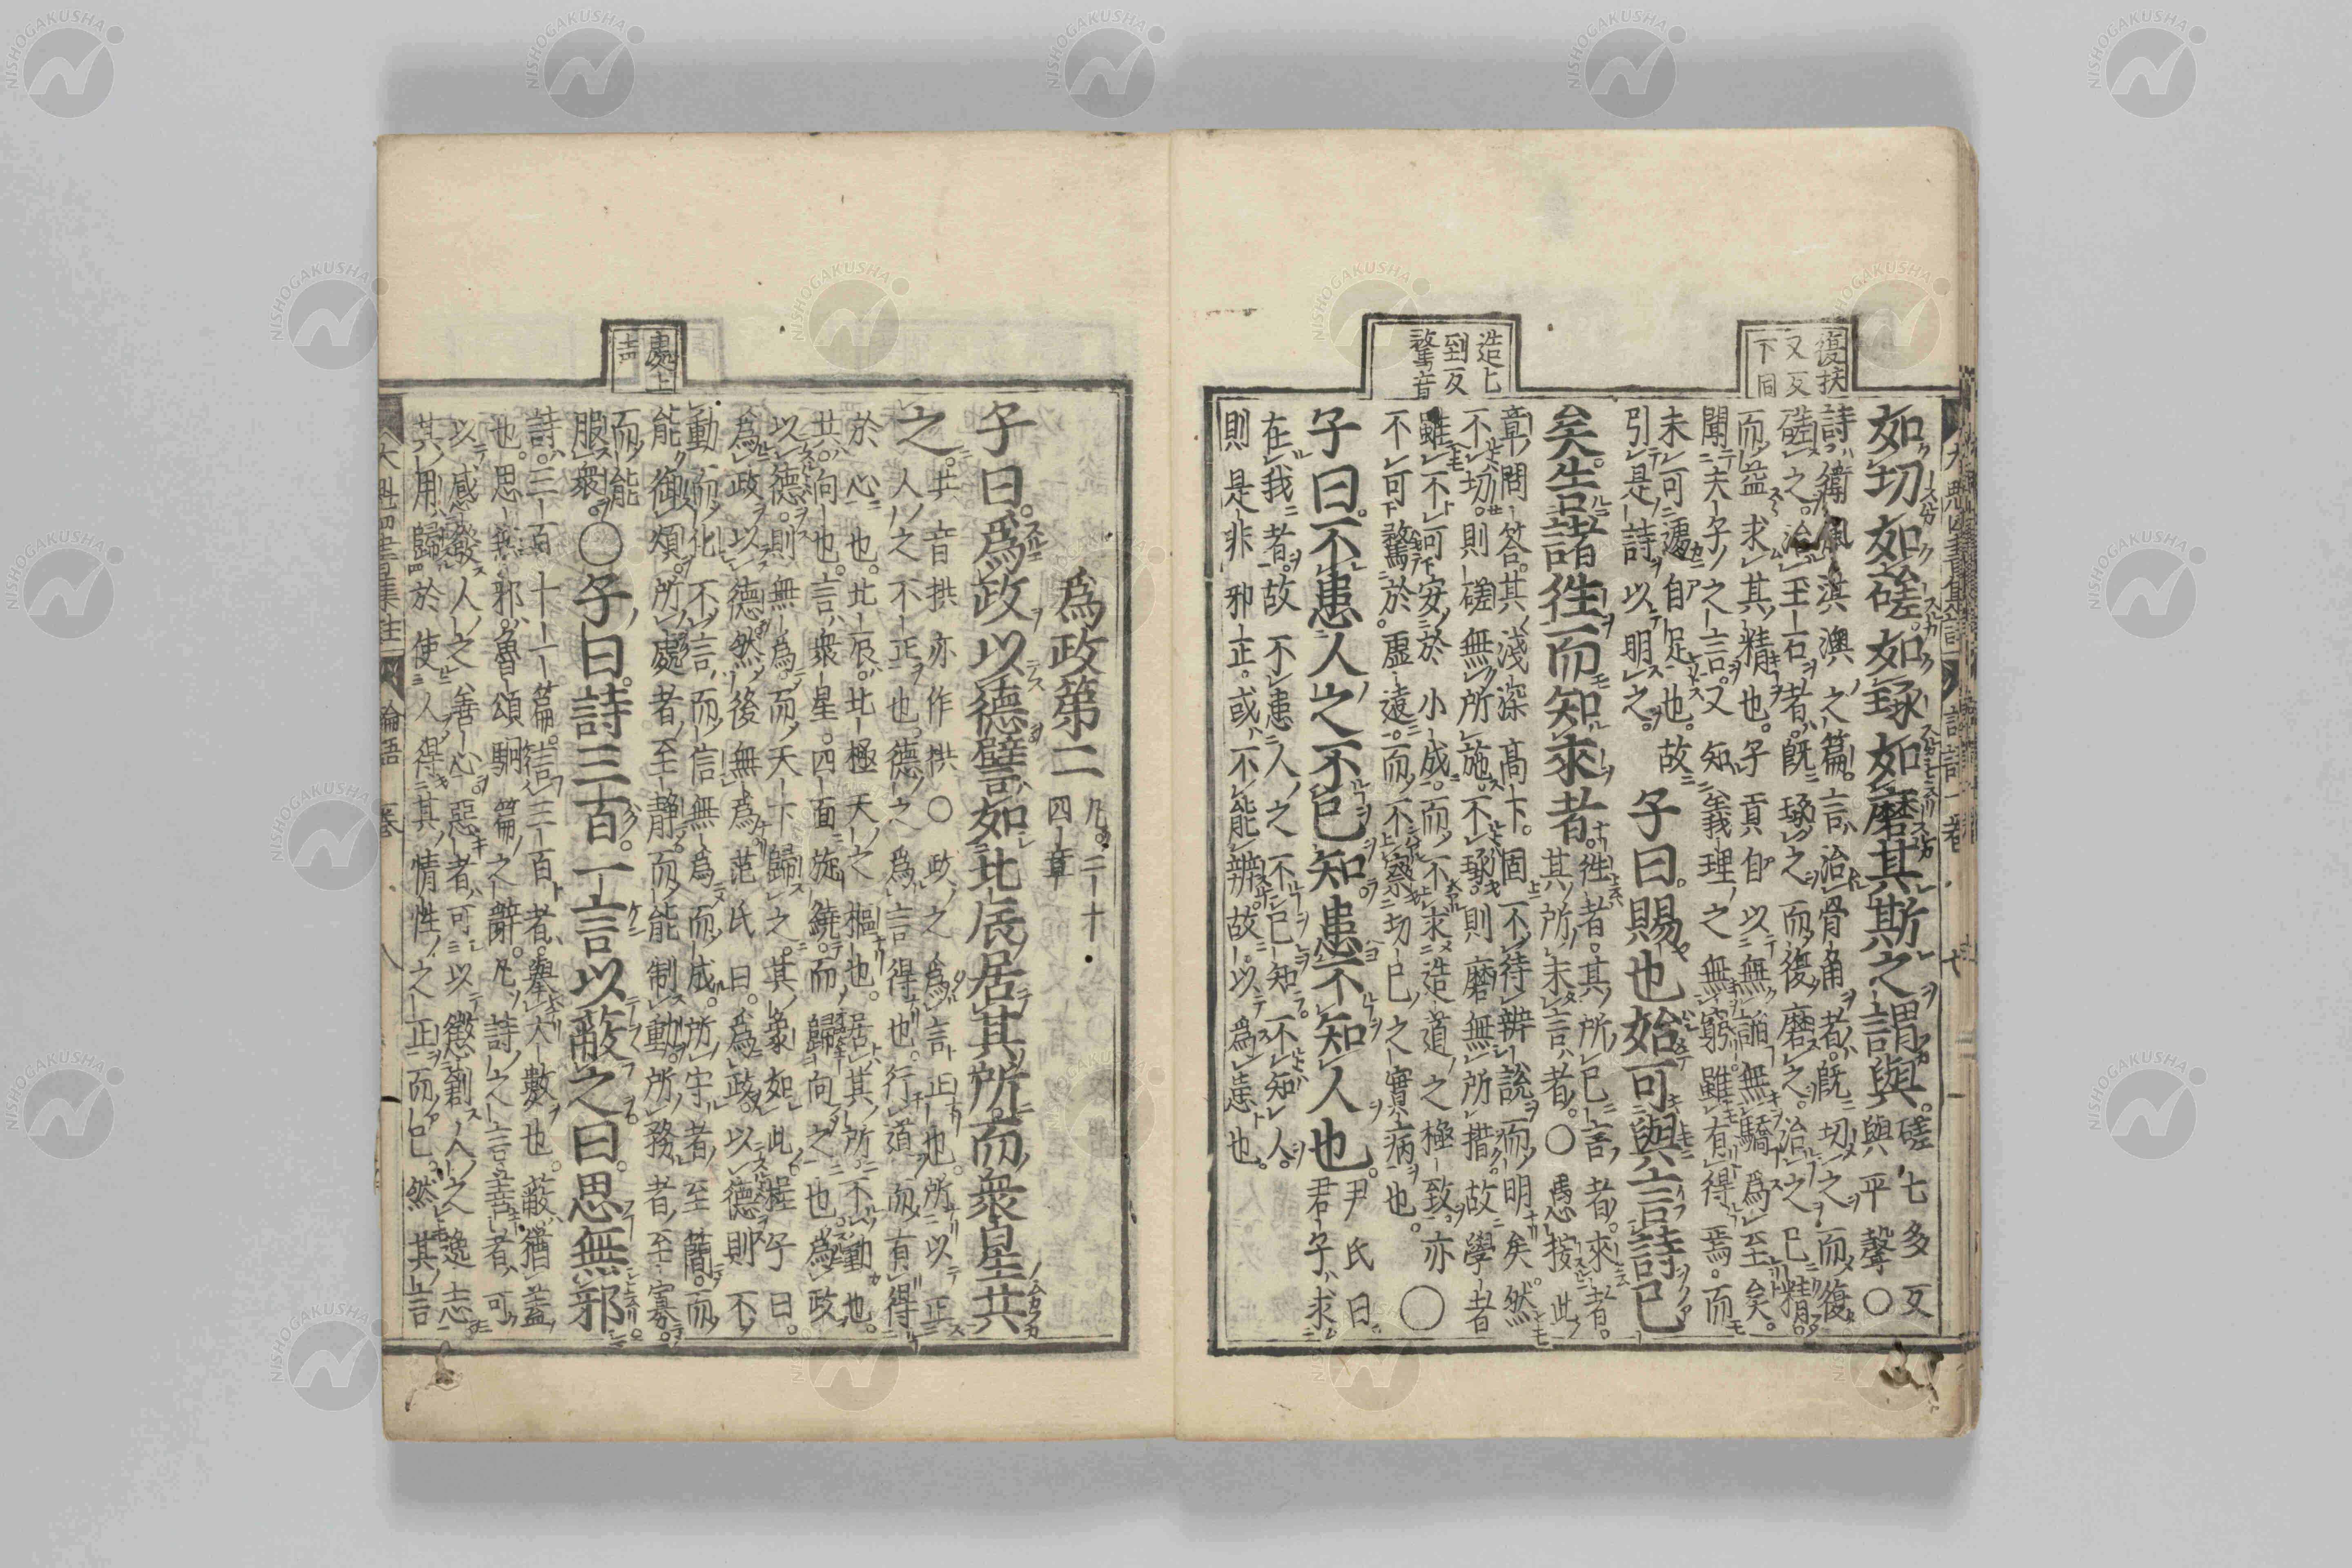 復扶
又反
下同
造七
到反
騖音
如切如磋如琢如磨其斯之謂與。磋七多反
與平聲○
詩衛風淇澳之篇。言治骨角者。既切之而復
磋之。治玉石者。既琢之而復磨之。治之已精。
而益求其精也。子貢自以無諂無驕為至矣。
聞夫子之言。又知義理之無窮雖有得焉。而
未可遽自足也。故
引是詩以明之。
子曰。賜也始可與言詩已
矣。告諸徃而知來者。徃者。其所已言者。來者。
其所未言者。○愚按此
章問答。其淺深高下。固不待辨說而明矣。然
不切。則磋無所施。不琢。則磨無所措。故學者
雖不可安於小成。而不求造道之極致。亦
不可騖於虛遠。而不察切己之實病也。○
子曰。不患人之不己知。患不知人也。尹氏曰
君子求
在我者。故不患人之不己知。不知人。
則是非邪正。或不能辨。故以為患也。
處上
聲
為政第二
凡二十
四章
子曰。為政以德。譬如北辰居其所。而衆星共
之。共音拱亦作拱○政之為言正也。所以正
人之不正也。德之為言得也。行道而有得
於心也。北辰。北極天之樞也。居其所。不動也。
共。向也。言衆星。四面旋繞。而歸向之也。為政
以德。則無為。而天下歸之。其象如此○程子曰。
為政以德然後無為。范氏曰。為政以德。則不
動而化。不言而信。無為而成。所守者至簡。而
能御煩。所處者至静。而能制動。所務者至寡。
而能
服衆。
○子曰。詩三百。一言以蔽之。曰。思無邪。
詩三百十一篇。言三百者。舉大數也。蔽猶蓋
也。思無邪。魯頌駉篇之辭。凡詩之言善者。可
以感發人之善心。惡者。可以懲創人之逸志。
其用歸於使人得其情性之正而已。然其言
論語